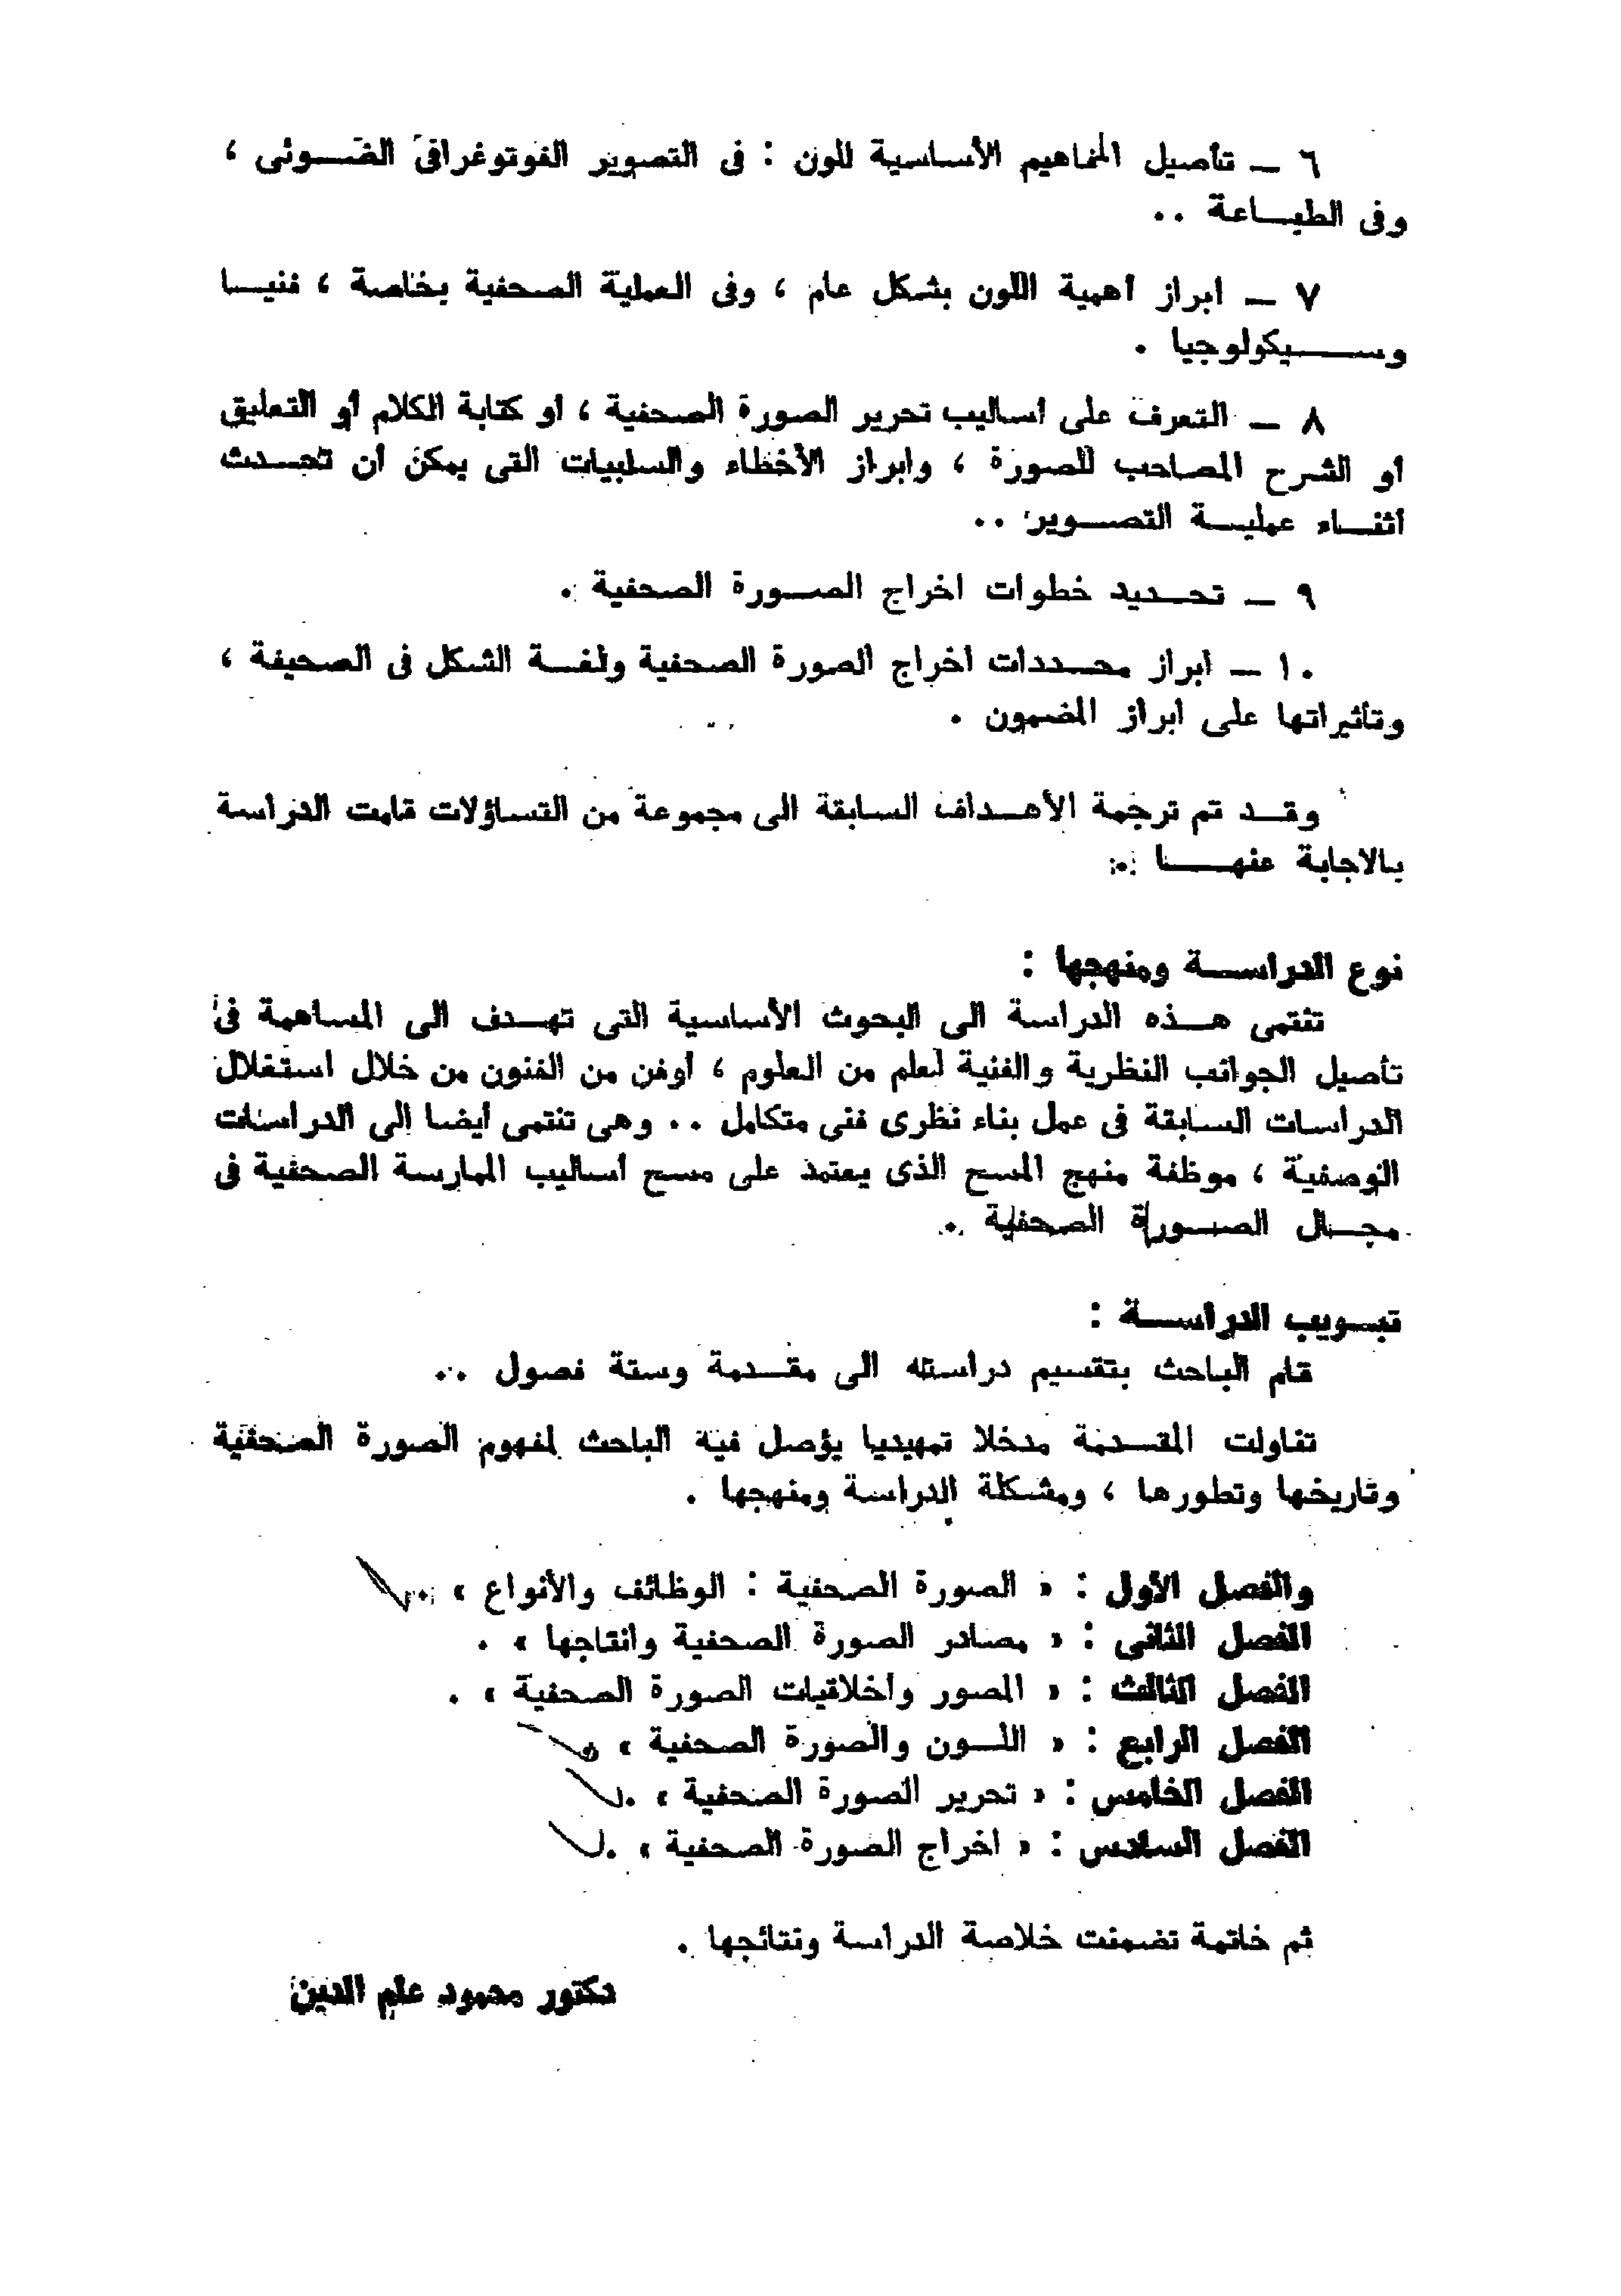 ٦ ـ تأصيل المفاهيم الأساسية للون : فى التصوير الفوتوغرافى الضـــوئى ،
وفى الطبـــاعة ..
٧ ـ ابراز أهمية اللون بشكل عام ، وفى العملية الصحفية بخاصة ، فنيـــا
وســـــيكولوجيا .
٨ ـ التعرف على أساليب تحرير الصورة الصحفية ، أو كتابة الكلام أو التعليق
أو الشرح المصاحب للصورة ، وابراز الأخطاء والسلبيات التى يمكن أن تحـــدث
أثنـــاء عمليـــة التصـــوير ..
٩ ـ تحـــديد خطوات اخراج الصـــورة الصحفية .
١٠ ـ ابراز محـــددات اخراج الصورة الصحفية ولغـــة الشكل فى الصحيفة ،
وتأثيراتها على ابراز المضمون .
وقـــد تم ترجمة الأهـــداف السابقة الى مجموعة من التساؤلات قامت الدراسة
بالاجابة عنهـــــا .
نوع الدراســـة ومنهجها :
تنتمى هـــذه الدراسة الى البحوث الأساسية التى تهـــدف الى المساهمة فى
تأصيل الجوانب النظرية والفنية لعلم من العلوم ، أوفن من الفنون من خلال استغلال
الدراسات السابقة فى عمل بناء نظرى فنى متكامل .. وهى تنتمى أيضا إلى الدراسات
الوصفية ، موظفة منهج المسح الذى يعتمد على مسح أساليب الممارسة الصحفية فى
مجـــال الصـــورة الصحفية .
تبـــويب الدراســـة :
قام الباحث بتقسيم دراسته الى مقـــدمة وستة فصول ..
تناولت المقـــدمة مدخلا تمهيديا يؤصل فيه الباحث لمفهوم الصورة الصحفية
وتاريخها وتطورها ، ومشكلة الدراسة ومنهجها .
والفصل الأول : « الصورة الصحفية : الوظائف والأنواع » .
الفصل الثانى : « مصادر الصورة الصحفية وانتاجها » .
الفصل الثالث : « المصور وأخلاقيات الصورة الصحفية » .
الفصل الرابع : « اللـــون والصورة الصحفية » .
الفصل الخامس : « تحرير الصورة الصحفية » .
الفصل السادس : « اخراج الصورة الصحفية » .
ثم خاتمة تضمنت خلاصة الدراسة ونتائجها .
دكتور محمود علم الدين